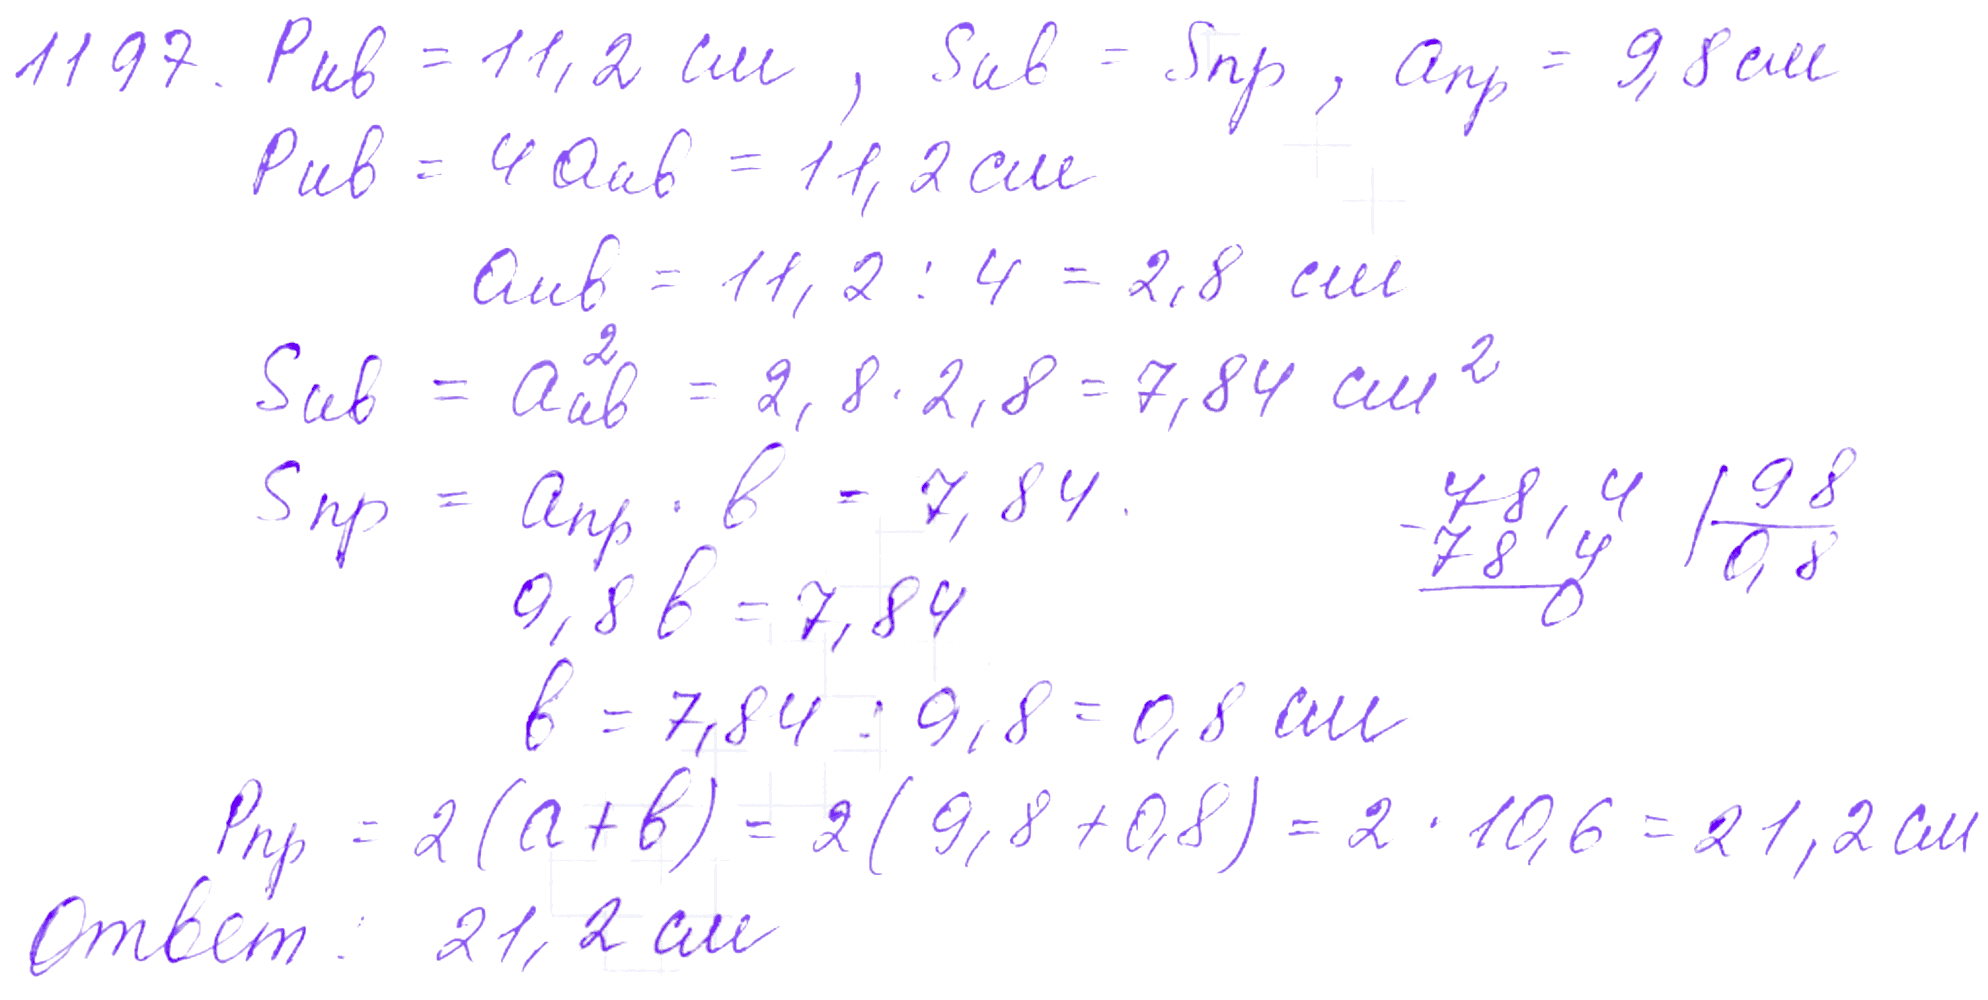 1197. Pкв = 11,2 см, Sкв = Sпр, aпр = 9,8 см
Pкв = 4 aкв = 11,2 см
aкв = 11,2 : 4 = 2,8 см
Sкв = a²кв = 2,8 · 2,8 = 7,84 см²
Sпр = aпр · в = 7,84.
78,4 | 98
- 78 4 | 0,8
0
9,8 в = 7,84
в = 7,84 : 9,8 = 0,8 см
Pпр = 2(а + в) = 2(9,8 + 0,8) = 2 · 10,6 = 21,2 см
Ответ: 21,2 см